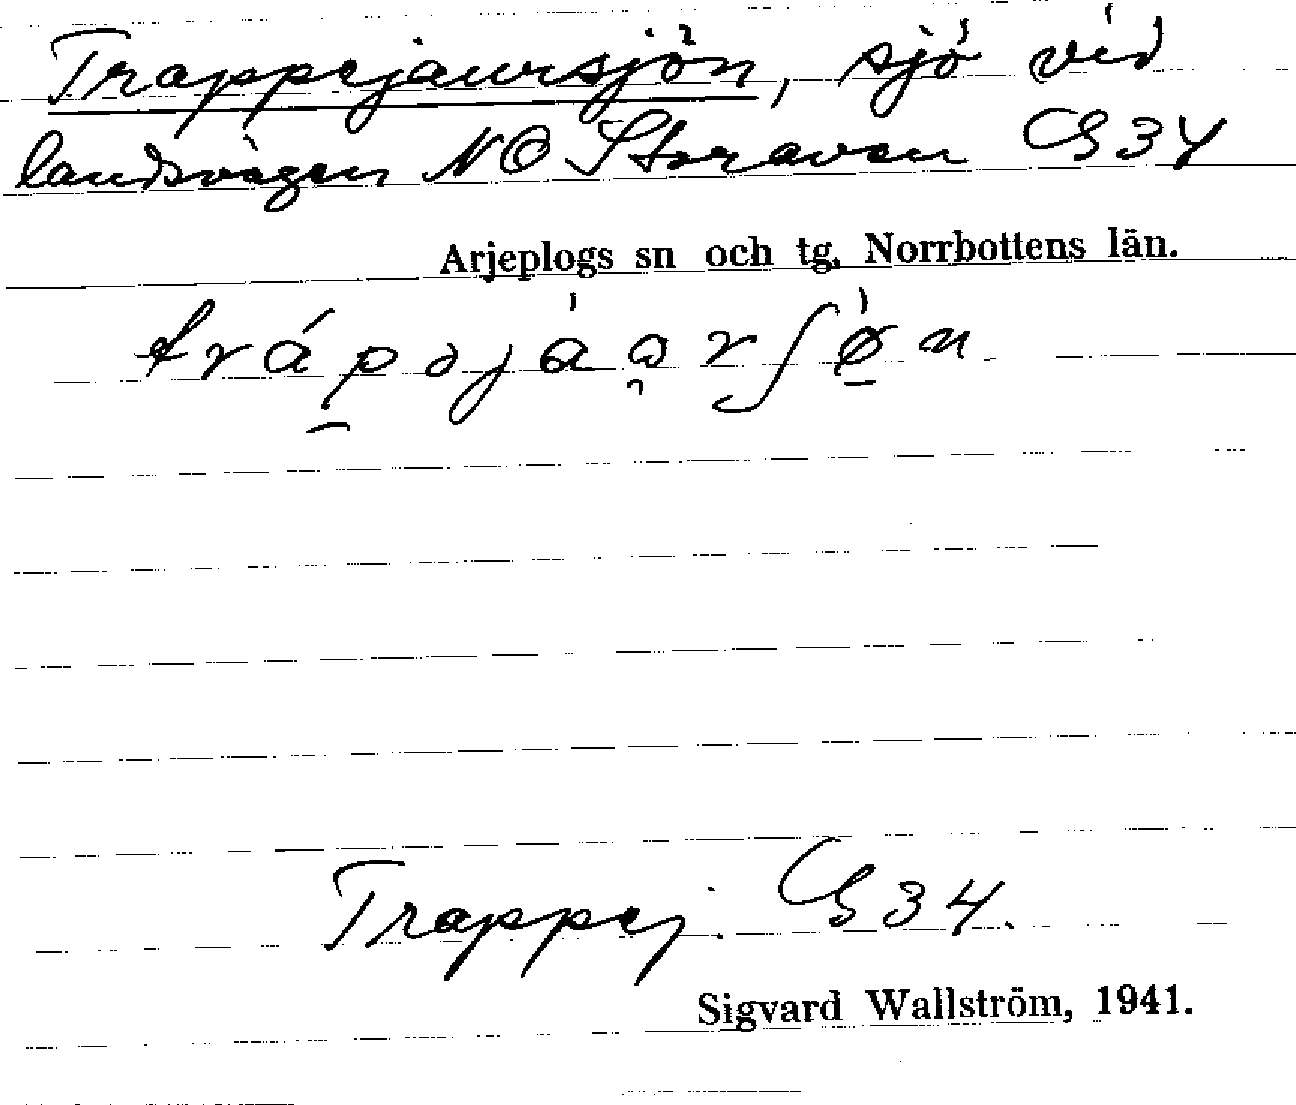 Trappejaursjön, sjö vid
landsvägen NO Storavan G34
Arjeplogs sn och tg. Norrbottens län.
Trappej. G34.
Sigvard Wallström, 1941.